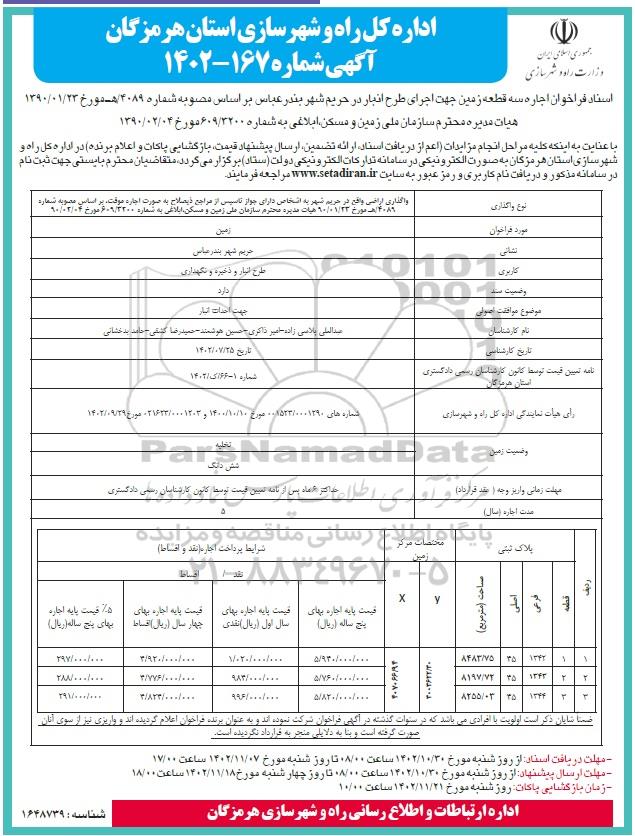 اداره کل راه و شهرسازی استان هرمزگان
آگهی شماره ۱۶۷-۱۴۰۲
جمهوری اسلامی ایران
وزارت راه و شهرسازی
اسناد فراخوان اجاره سه قطعه زمین جهت اجرای طرح انبار در حریم شهر بندرعباس بر اساس مصوبه شماره ۴۰۸۹/هـ مورخ ۱۳۹۰/۰۱/۲۳
هیات مدیره محترم سازمان ملی زمین و مسکن، ابلاغی به شماره ۶۰۹/۳۲۰۰ مورخ ۱۳۹۰/۰۲/۰۴
با عنایت به اینکه کلیه مراحل انجام مزایدات (اعم از دریافت اسناد، ارائه تضمین، ارسال پیشنهاد قیمت، بازگشایی پاکات و اعلام برنده) در اداره کل راه و
شهرسازی استان هرمزگان به صورت الکترونیکی در سامانه تدارکات الکترونیکی دولت (ستاد) برگزار می گردد، متقاضیان محترم بایستی جهت ثبت نام
در سامانه مذکور و دریافت نام کاربری و رمز عبور به سایت www.setadiran.ir مراجعه فرمایند.
نوع واگذاری
واگذاری اراضی واقع در حریم شهر به اشخاص دارای جواز تاسیس از مراجع ذیصلاح به صورت اجاره موقت، بر اساس مصوبه شماره
۴۰۸۹/هـ مورخ ۹۰/۰۱/۲۳ هیات مدیره محترم سازمان ملی زمین و مسکن، ابلاغی به شماره ۶۰۹/۳۲۰۰ مورخ ۹۰/۰۲/۰۴
مورد فراخوان زمین
نشانی حریم شهر بندرعباس
کاربری طرح انبار و ذخیره و نگهداری
وضعیت سند دارد
موضوع موافقت اصولی جهت احداث انبار
نام کارشناسان عبدالعلی پلاسی زاده-امیر ذاکری-حسین هوشمند-حمیدرضا کشفی-حامد بدخشانی
تاریخ کارشناسی تاریخ ۱۴۰۲/۰۷/۲۵
نامه تعیین قیمت توسط کانون کارشناسان رسمی دادگستری
استان هرمزگان
شماره ۱-۶۶/ک/۱۴۰۲
رأی هیأت نمایندگی اداره کل راه و شهرسازی شماره های ۰۰۱۵۲۳/۰۰۰۱۲۹۰ مورخ ۱۴۰۰/۱۰/۱۰ و ۰۲۱۶۲۳/۰۰۰۱۲۰۳ مورخ ۱۴۰۲/۰۹/۲۹
وضعیت زمین
تخلیه
شش دانگ
مهلت زمانی واریز وجه ( عقد قرارداد) حداکثر ۶ ماه پس از نامه تعیین قیمت توسط کانون کارشناسان رسمی دادگستری
مدت اجاره (سال) ۵
ردیف
قطعه
پلاک ثبتی
فرعی
اصلی
مساحت (مترمربع)
مختصات مرکز
زمین
y
X
شرایط پرداخت اجاره (نقد و اقساط)
نقد / اقساط
قیمت پایه اجاره بهای
پنج ساله (ریال)
قیمت پایه اجاره بهای
سال اول (ریال) نقدی
قیمت پایه اجاره بهای
چهار سال (ریال) اقساط
۵٪ قیمت پایه اجاره
بهای پنج ساله (ریال)
۱ ۱ ۱۳۴۲ ۴۵ ۸۴۸۳/۷۵ ۵/۹۴۰/۰۰۰/۰۰۰ ۱/۰۲۰/۰۰۰/۰۰۰ ۴/۹۲۰/۰۰۰/۰۰۰ ۲۹۷/۰۰۰/۰۰۰
۲ ۲ ۱۳۴۳ ۴۵ ۸۱۹۷/۷۲ ۵/۷۶۰/۰۰۰/۰۰۰ ۹۸۴/۰۰۰/۰۰۰ ۴/۷۷۶/۰۰۰/۰۰۰ ۲۸۸/۰۰۰/۰۰۰
۳ ۳ ۱۳۴۴ ۴۵ ۸۲۵۵/۰۳ ۵/۸۲۰/۰۰۰/۰۰۰ ۹۹۶/۰۰۰/۰۰۰ ۴/۸۲۴/۰۰۰/۰۰۰ ۲۹۱/۰۰۰/۰۰۰
ضمنا شایان ذکر است اولویت با افرادی می باشد که در سنوات گذشته در آگهی فراخوان شرکت نموده اند و به عنوان برنده فراخوان اعلام گردیده اند و واریزی نیز از سوی آنان
صورت گرفته است و بنا به دلایلی منجر به قرارداد نگردیده است.
-مهلت دریافت اسناد: از روز شنبه مورخ ۱۴۰۲/۱۰/۳۰ ساعت ۰۸/۰۰ تا روز شنبه مورخ ۱۴۰۲/۱۱/۰۷ ساعت ۱۷/۰۰
-مهلت ارسال پیشنهاد: از روز شنبه مورخ ۱۴۰۲/۱۰/۳۰ ساعت ۰۸/۰۰ تا روز چهار شنبه مورخ ۱۴۰۲/۱۱/۱۸ ساعت ۱۸/۰۰
-زمان بازگشایی پاکات: روز شنبه مورخ ۱۴۰۲/۱۱/۲۱ ساعت ۱۰/۰۰
اداره ارتباطات و اطلاع رسانی راه و شهرسازی هرمزگان
شناسه : ۱۶۴۸۷۳۹
ParsNamadData
پایگاه اطلاع رسانی مناقصه و مزایده
۰۲۱-۸۸۳۴۹۶۷۰-۵